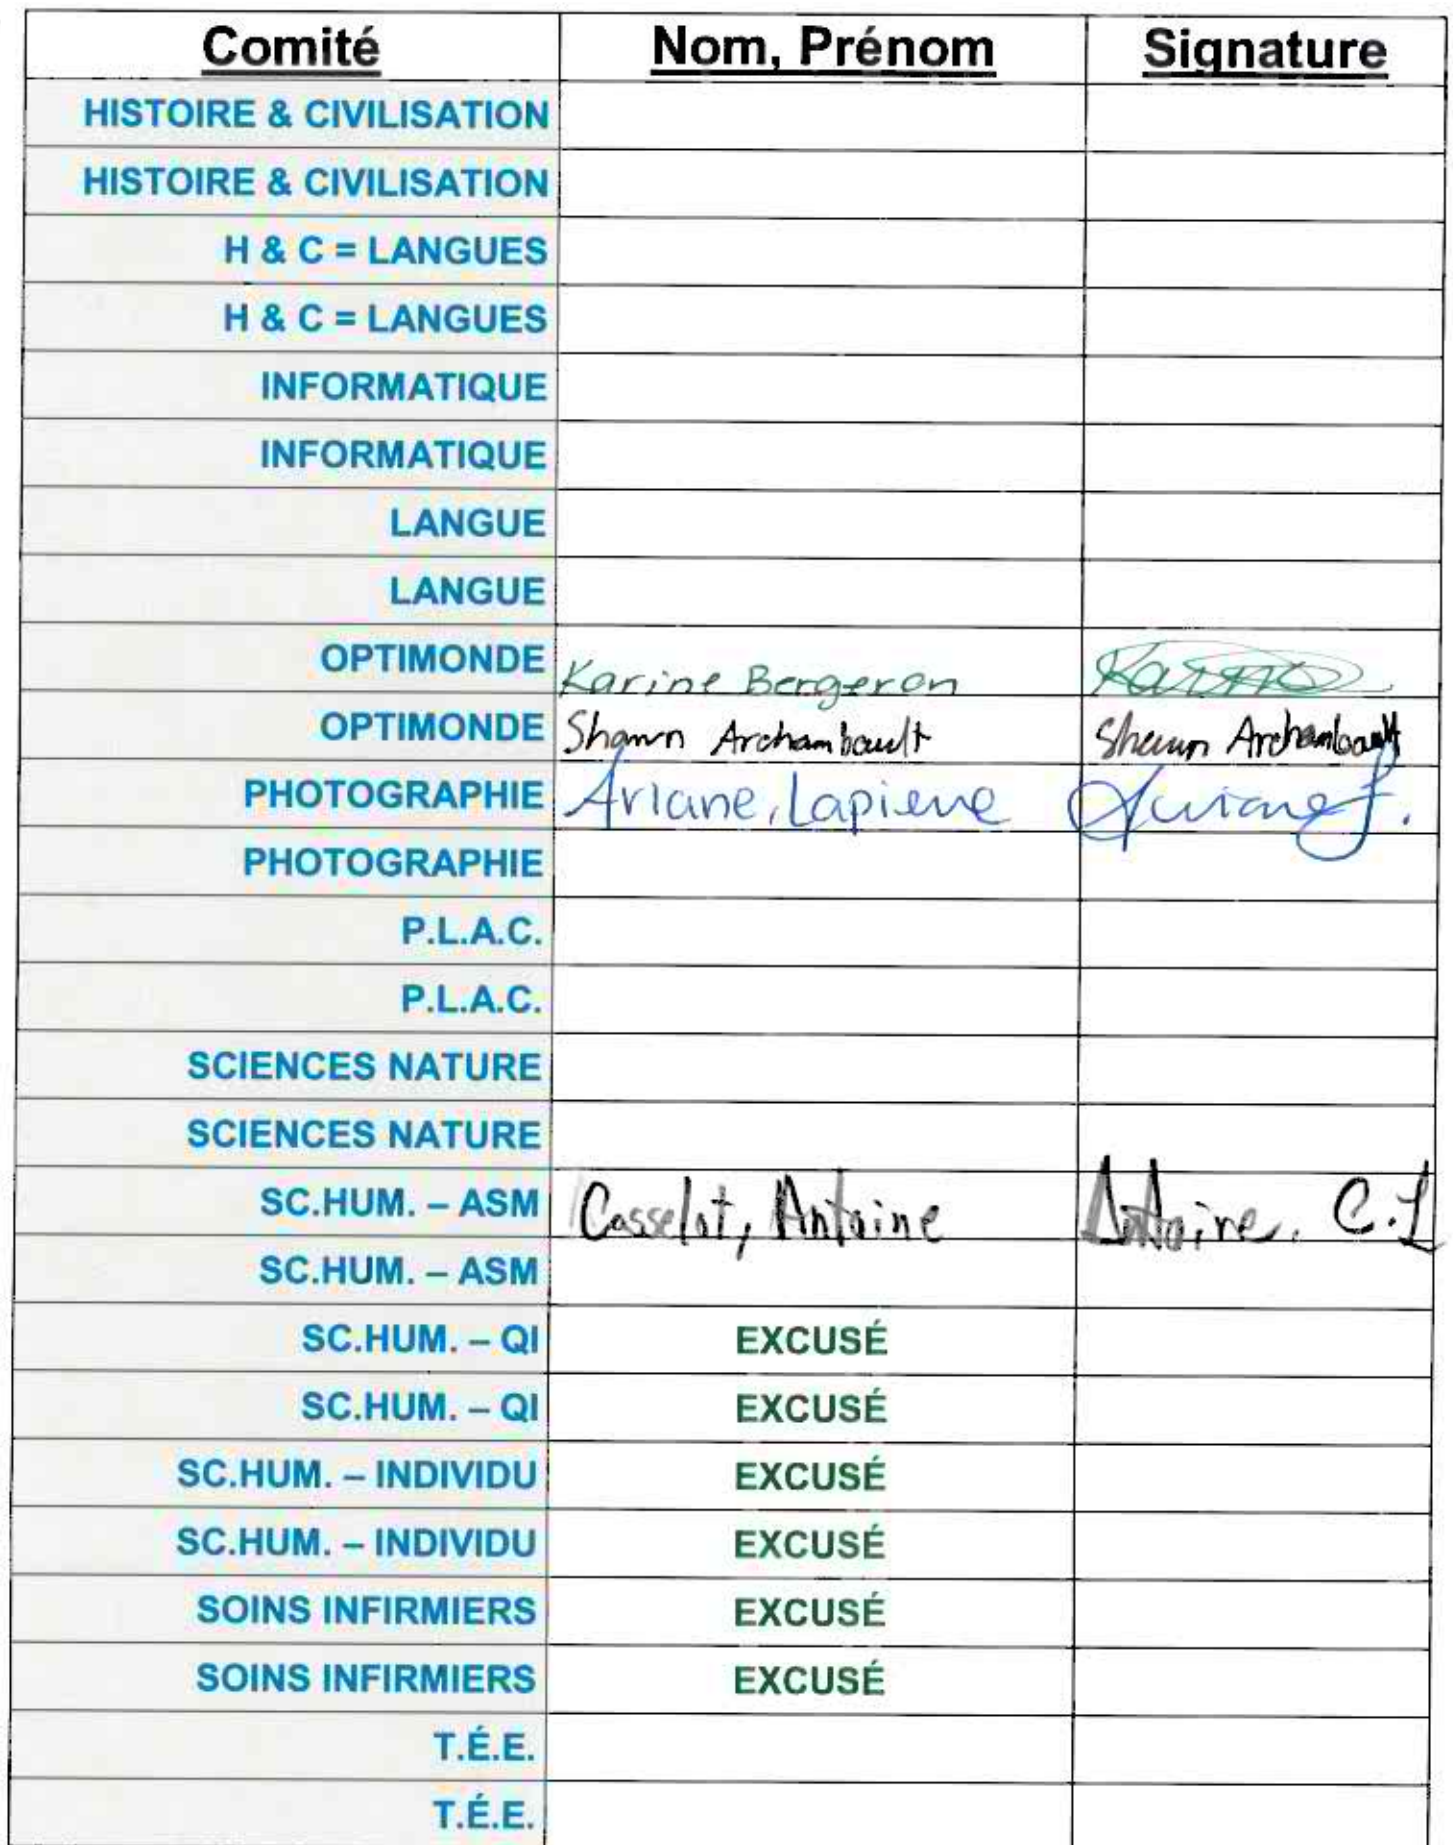 Comité Nom, Prénom Signature
HISTOIRE & CIVILISATION
HISTOIRE & CIVILISATION
H & C = LANGUES
H & C = LANGUES
INFORMATIQUE
INFORMATIQUE
LANGUE
LANGUE
OPTIMONDE Karine Bergeron Karine
OPTIMONDE Shawn Archambault Shawn Archambault
PHOTOGRAPHIE Ariane, Lapierre Ariane L.
PHOTOGRAPHIE
P.L.A.C.
P.L.A.C.
SCIENCES NATURE
SCIENCES NATURE
SC.HUM. – ASM Casselot, Antoine Antoine. C.L
SC.HUM. – ASM
SC.HUM. – QI EXCUSÉ
SC.HUM. – QI EXCUSÉ
SC.HUM. – INDIVIDU EXCUSÉ
SC.HUM. – INDIVIDU EXCUSÉ
SOINS INFIRMIERS EXCUSÉ
SOINS INFIRMIERS EXCUSÉ
T.É.E.
T.É.E.